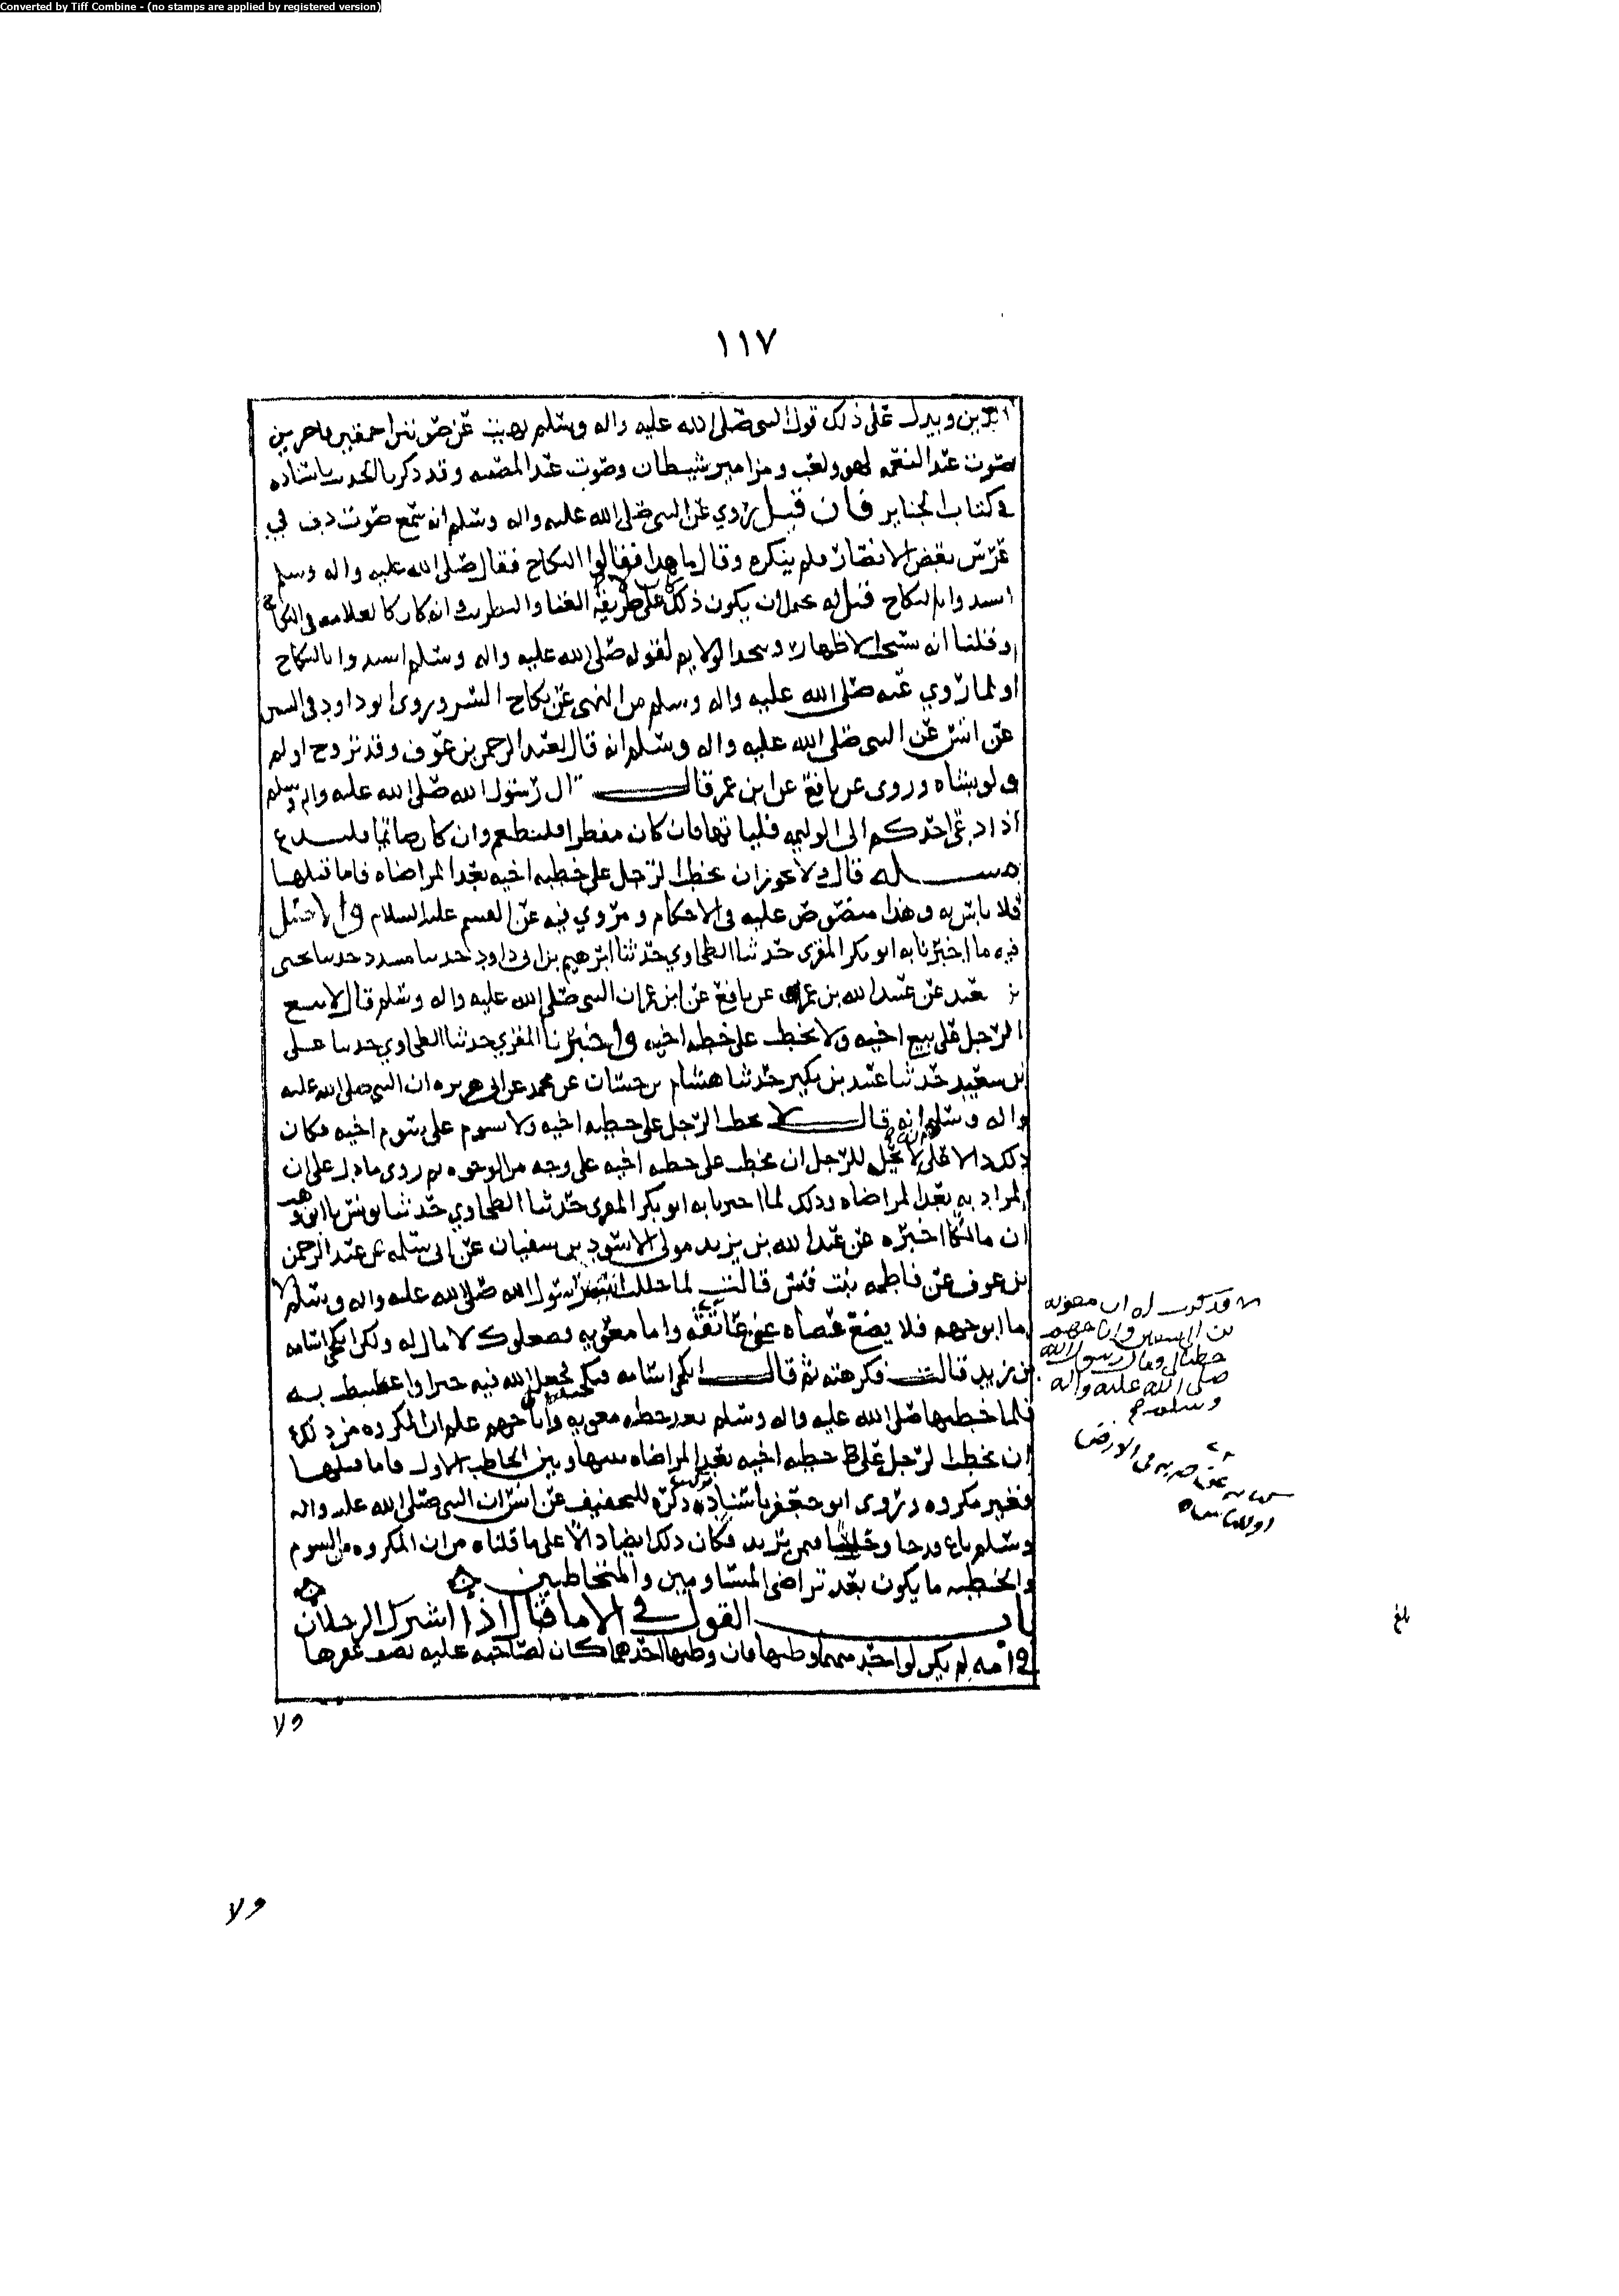 Converted by Tiff Combine - (no stamps are applied by registered version)
١١٧
ويدل على ذلك قول النبي صلى الله عليه واله وسلم نهيت عن صوتين احمقين فاجرين
صوت عند النعمه لهو ولعب ومزامير شيطان وصوت عند المصيبه وقد ذكرنا الحديث باسناده
في كتاب الجنايز فان قيل روي عن النبي صلى الله عليه واله وسلم انه سمع صوت دف في
عرس بعض الانصار فلم ينكره وقال ما هذا فقالوا النكاح فقال صلى الله عليه واله وسلم
اسيدوا بالنكاح قيل له يحمل ان يكون ذلك كان لا على طريقة الغنا والتطريب وانه كان كالعلامه في النكاح
وقلنا انه يستحب الاظهار ويتخذ الولايم لقوله صلى الله عليه واله وسلم اسيدوا بالنكاح
او لما روي عنه صلى الله عليه واله وسلم من النهي عن نكاح السر وروى ابو داود في السنن
عن انس عن النبي صلى الله عليه واله وسلم انه قال لعبد الرحمن بن عوف وقد تزوج اولم
ولو بشاه وروى عن نافع عن ابن عمر قال قال رسول الله صلى الله عليه واله وسلم
اذا دعي احدكم الى الوليمه فلياتها فان كان مفطرا فليطعم وان كان صائما فليدع
مسله قال ولا يجوز ان يخطب الرجل على خطبه اخيه بعد المراضاه فاما قبلها
فلا باس به وهذا منصوص عليه في الاحكام ومروي فيه عن القسم عليه السلام والاصل
فيه ما اخبرنا به ابو بكر المقري حدثنا الطحاوي حدثنا ابرهيم بن ابي داود حدثنا مسدد حدثنا يحيى
بن سعيد عن عبد الله بن عمر عن نافع عن ابن عمر ان النبي صلى الله عليه واله وسلم قال لا يبيع
الرجل على بيع اخيه ولا يخطب على خطبه اخيه واخبرنا المقري حدثنا الطحاوي حدثنا علي
بن سعيد حدثنا عبد بن بكير حدثنا هشام بن حسان عن محمد عن ابي هريره ان النبي صلى الله عليه
واله وسلم انه قال لا يخطب الرجل على خطبه اخيه ولا يسوم على سوم اخيه فكان
ذلك دالا على انه لا يحل للرجل ان يخطب على خطبه اخيه على وجه من الوجوه ثم روى ما دل على ان
المراد به بعد المراضاه وذلك لما اخبرنا به ابو بكر المقري حدثنا الطحاوي حدثنا يونس نا ابن وهب
ان مالكا اخبره عن عبد الله بن يزيد مولى الاسود بن سفيان عن ابي سلمه بن عبد الرحمن
بن عوف عن فاطمه بنت قيس قالت لما حللت اتيت رسول الله صلى الله عليه واله وسلم
اما ابو جهم فلا يضع عصاه عن عاتقه واما معويه فصعلوك لا مال له ولكن انكحي اسامه
بن زيد قالت فكرهته ثم قال انكحي اسامه فنكحته فجعل الله فيه خيرا واغتبطت به
فلما خطبها صلى الله عليه واله وسلم بعد خطبه معويه وابا جهم علم ان المكروه من ذلك
ان يخطب الرجل على خطبه اخيه بعد المراضاه بينها وبين الخاطب الاول فاما قبلها
فغير مكروه وروى ابو جعفر باسناده ذكره عن انس ان النبي صلى الله عليه واله
وسلم باع قدحا وحلسا فيمن يزيد فكان ذلك ايضا دالا على ما قلناه من ان المكروه من السوم
والخطبه ما يكون بعد تراضي المتساومين والمتخاطبين
باب القول في الاما قال اذا اشترك الرجلان
في امه لم يكن لواحد منهما وطيها فان وطيها احدهما كان لصاحبه عليه نصف عقرها
ولا
قد ذكرت له ان معويه
بن ابي سفيان وابا جهم
خطباني فقال رسول الله
صلى الله عليه واله
وسلم
بلغ
ولا